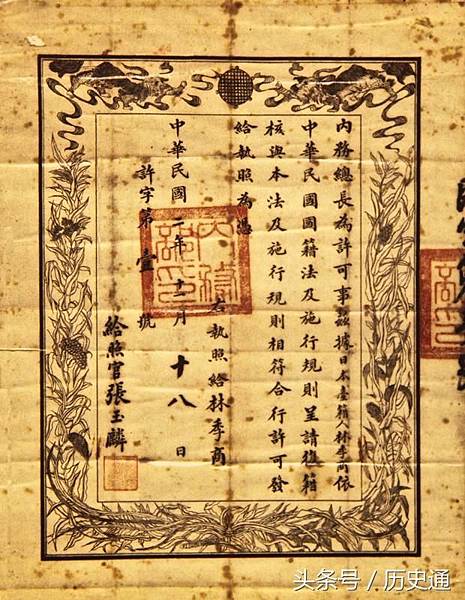 內務總長為許可事茲據日本臺籍人林季商依
中華民國國籍法及施行規則呈請復籍
核與本法及施行規則相符合行許可發
給執照為憑
右執照給林季商
中華民國二年十一月十八日
許字第壹號
給照官張玉麟
內務部印
头条号 / 历史通